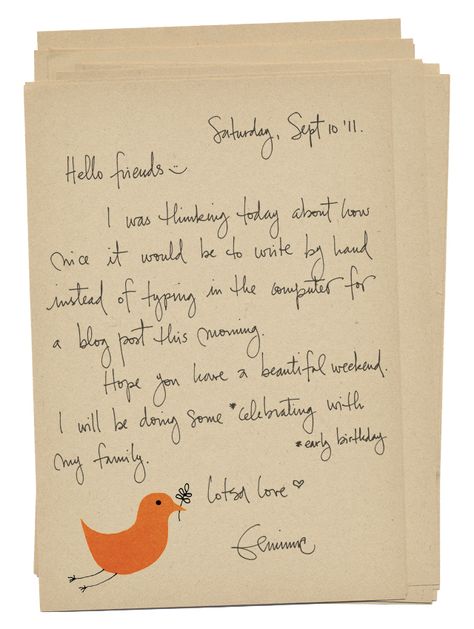 Saturday, Sept 10 '11.
Hello friends
I was thinking today about how
nice it would be to write by hand
instead of typing in the computer for
a blog post this morning.
Hope you have a beautiful weekend.
I will be doing some *celebrating with
*early birthday
my family.
Lotsa Love
Geninne